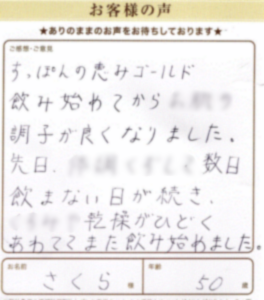 お客様の声
★ありのままのお声をお待ちしております★
ご感想・ご意見
すっぽんの恵みゴールド
飲み始めてから
調子が良くなりました。
先日、 数日
飲まない日が続き、
乾燥がひどく
あわててまた飲み始めました。
お名前 さくら 様 年齢 50 歳